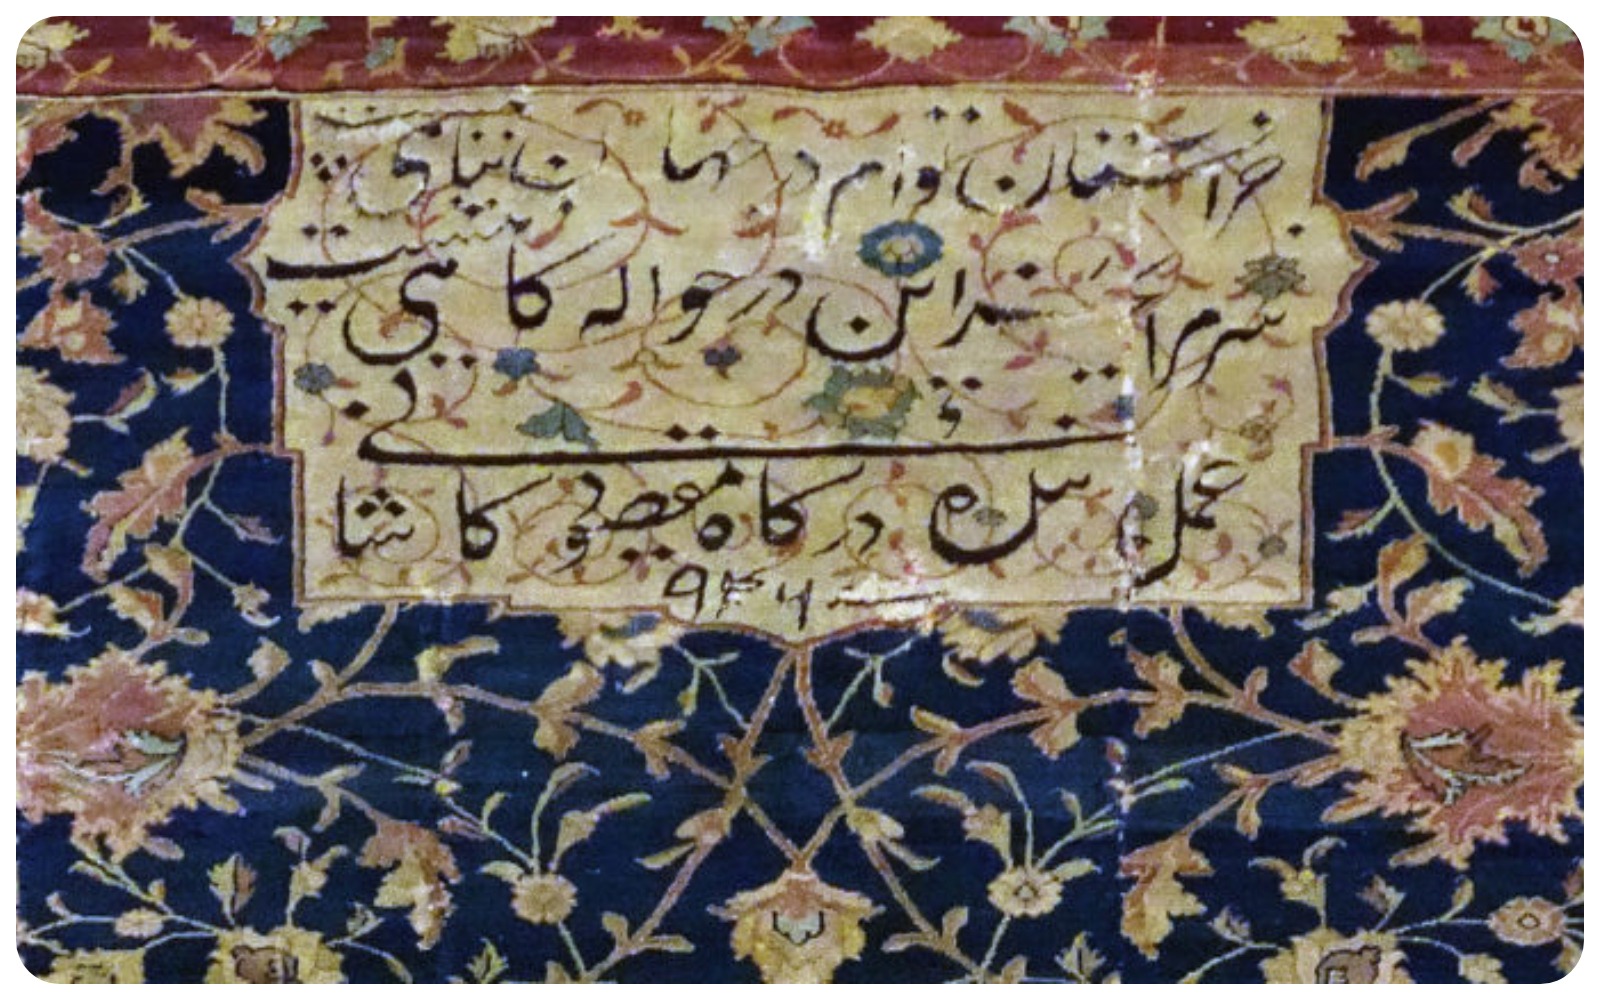 جز آستان توام در جهان پناهی نیست
سر مرا بجز این در حواله گاهی نیست
عمل بنده درگاه مقصود کاشانی
سنه ۹۴۶